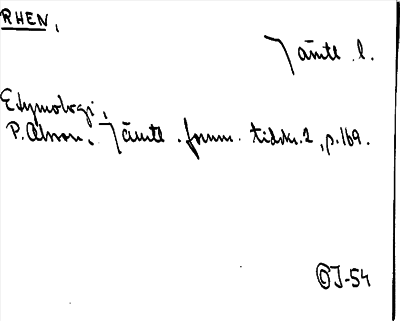 RHEN,
Jämtl. l.
Etymologi;
P. Olsson. Jämtl. fornm. tidskr. 2, p. 169.
OJ-54